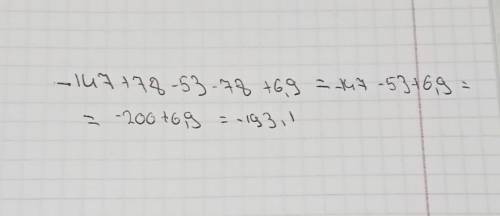 -147+78-53-78+6,9 = -147-53+6,9 =
= -200+6,9 = -193,1